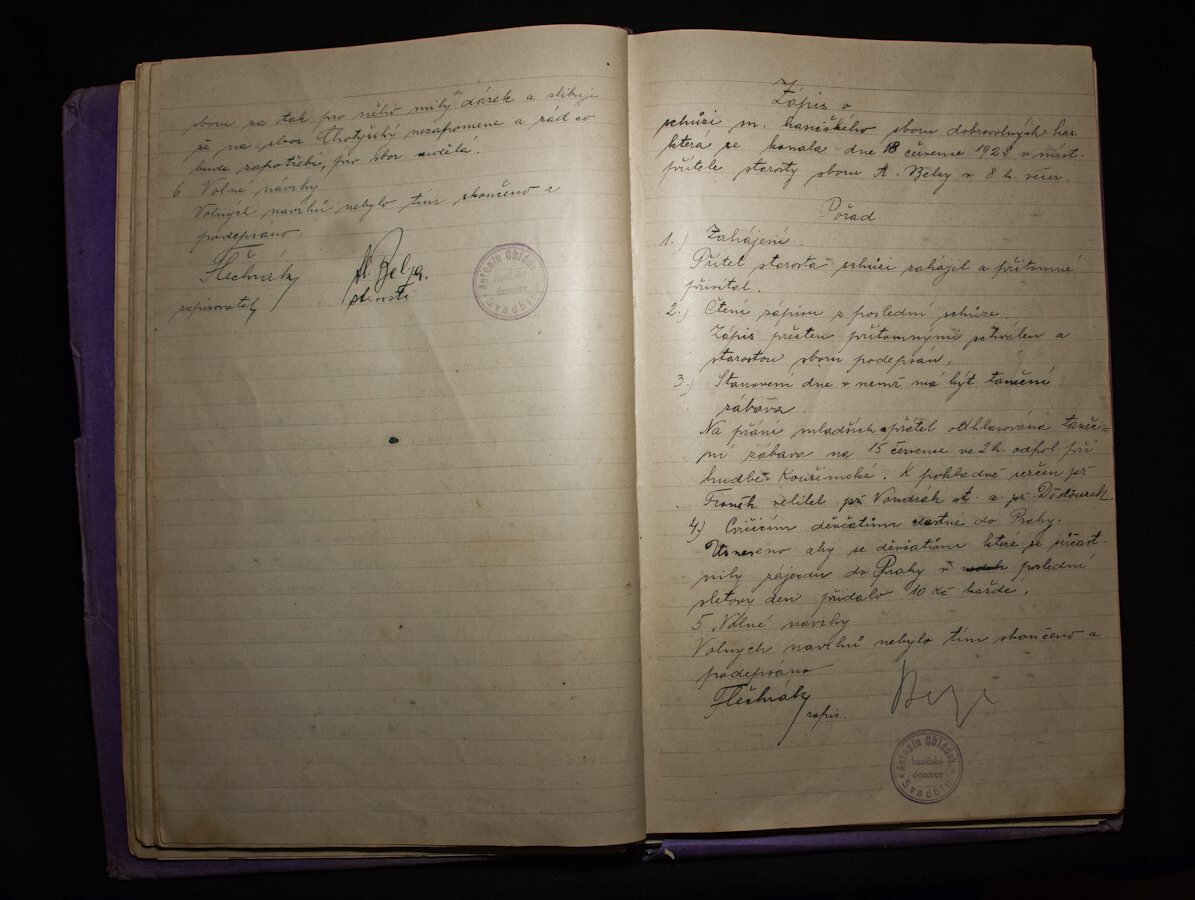 sboru za tak pro něho milý dárek a slibuje
že na sbor Chotýšský nezapomene a rád co
bude zapotřebí, pro sbor udělá.
6 Volné návrhy
Volných navrhů nebylo tím skončeno a
podepsáno.
Flechnák
zapisovatel
A. Belza.
starosta
Antonín Chládek
hasičský
dozorce
Svadbín
Zápis o
schůzi m. hasičského sboru dobrovolných has.
která se konala dne 18 července 1928 v míst.
přítele starosty sboru A. Belzy v 8 h. večer.
Pořad
1.) Zahájení.
Přítel starosta schůzi zahájil a přítomné
přivítal.
2.) Čtení zápisu z poslední schůze.
Zápis přečten přítomnými schválen a
starostou sboru podepsán.
3.) Stanovení dne v nemž má být taneční
zábava.
Na přání mladších přátel odhlasována taneč-
ní zábava na 15 července ve 2 h. odpol. při
hudbě Kouřimské. K pokladně určen př
Franěk velitel př Vondrák st. a př. Dědourek.
4.) Cvičícím děvčatům cestné do Prahy.
Usneseno aby se děvčatům které se súčast-
nily zájezdu do Prahy v poslední
sletový den přidalo 10 Kč každé.
5. Volné navrhy
Volnych navrhů nebylo tím skončeno a
podepsáno
Flechnák
zapis.
Antonín Chládek
hasičský
dozorce
Svadbín